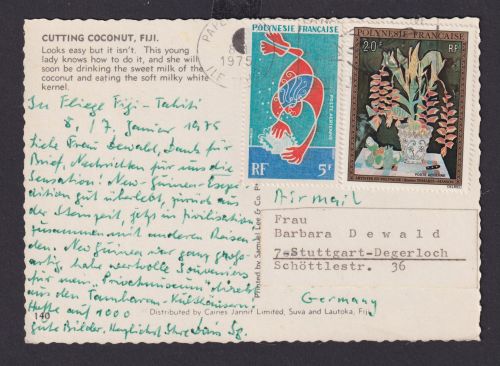 CUTTING COCONUT, FIJI.
Looks easy but it isn't. This young
lady knows how to do it, and she will
soon be drinking the sweet milk of the
coconut and eating the soft milky white
kernel.
Im Fluge Fiji-Tahiti
8./7. Januar 1975
Liebe Frau Dewald, Dank für
Brief, Nachrichten für uns die
Sensation! Neu-Guinea-Expe-
dition gut überlebt, zurück aus
der Steinzeit, jetzt in Zivilisation
zusammen mit anderen Reisen-
den. Neu Guinea war ganz groß-
artig, habe wertvolle Souvenirs
für mein "Privatmuseum" direkt
aus den Tambaran-Kulthäusern!
Hoffe auf 1000
gute Bilder. Herzlichst Ihre
140
Distributed by Caines Jannif Limited, Suva and Lautoka, Fiji
Printed by Samuel Lee & Co.
POLYNÉSIE FRANÇAISE
POSTE AÉRIENNE
RF 5F
POLYNESIE FRANÇAISE
20F RF
POSTE AERIENNE
1975
Airmail
Frau
Barbara Dewald
7-Stuttgart-Degerloch
Schöttlestr. 36
Germany